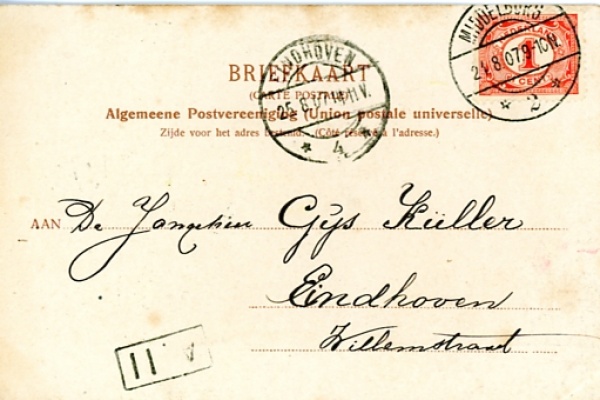 MIDDELBURG
24.8.07.9-10N.
2
NEDERLAND
1
CENT
EINDHOVEN
25.8.07.
4
BRIEFKAART
(CARTE POSTALE)
Algemeene Postvereeniging (Union postale universelle)
Zijde voor het adres bestemd. (Côté réservé à l'adresse.)
AAN De Jongeheer Gijs Küller
Eindhoven
Willemstraat
A. 11